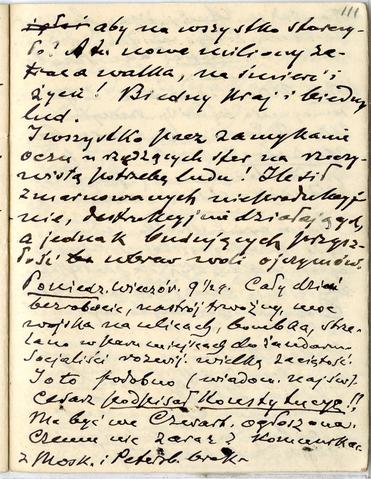 111
aby na wszystko starczy-
ło! A tu nowe miliony za-
walka, na śmierć i
życie! Biedny kraj i biedny
lud.
I wszystko przez zamykanie
oczu rządzących sfer na rzeczy-
wistą potrzebę ludu! Ile sił
zmarnowanych nieprodukcyj-
nie, destrukcyjnie działających,
a jednak budujących przysz-
łość wbrew woli ojczymów.
Poniedz. wieczór. 9½ g. Cały dzień
bezrobocie, nastrój trwożny, moc
wojska na ulicach, bomba, strze-
lano w paru miejscach do żandarm.
Socjaliści rozwij. wielką zaciętość.
I oto podobno (wiadom. najśw.)
cesarz podpisał Konstytucyę!!
Ma być we Czwart. ogłoszona.
Czemu nie zaraz?
z Mosk. i Petersb. brak.